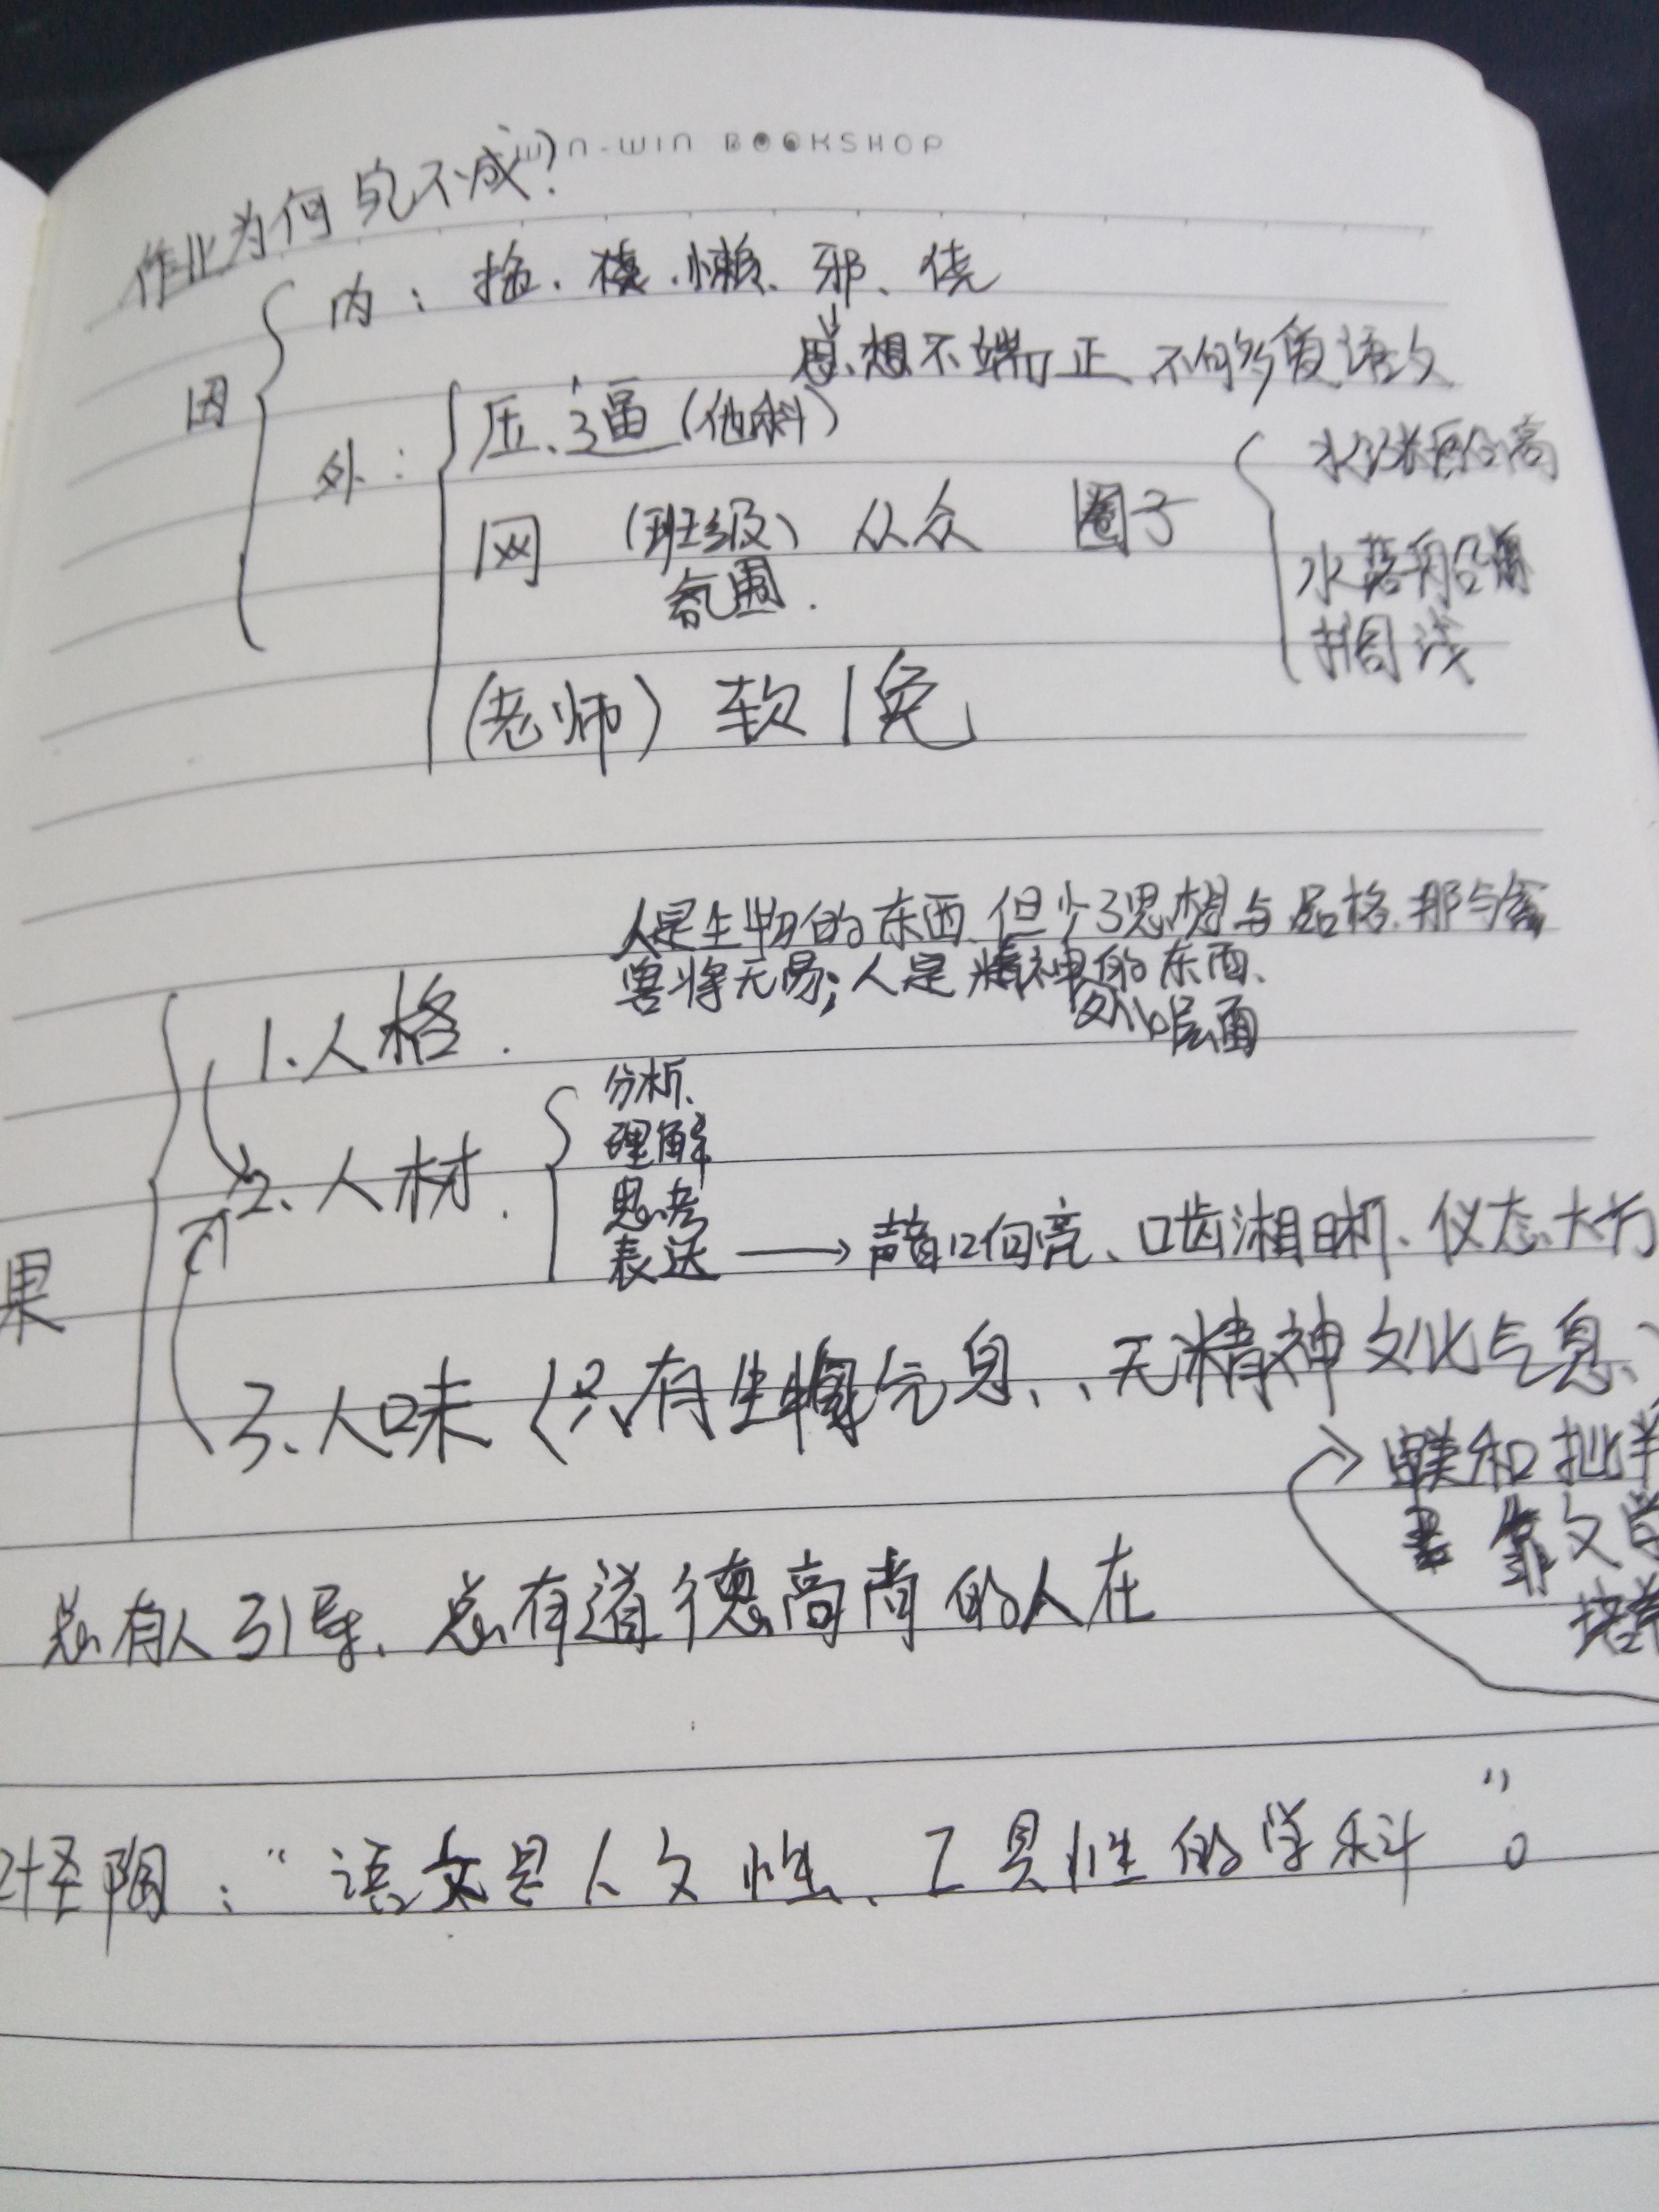 WIN-WIN BOOKSHOP
作业为何完不成?
因
内: 拖、懒、邪、侥
思想不端正 不向 语文
外:
压、逼(他科)
网 (班级) 从众 圈子
氛围.
水涨船高
水落船
搁浅
(老师) 软
人是生物的东西、但少了思想与品格、那与禽
兽将无易;人是精神的东西、
文化层面
果
1.人格.
2、人材.
分析、
理解
思考
表达 → 声音、口齿清晰、仪态大方
3、人味(只有生物气息、、无精神文化气息、)
和批
靠文学
培养
总有人引导、总有道德高尚的人在
陶:“语文是人文性、工具性的学科”。